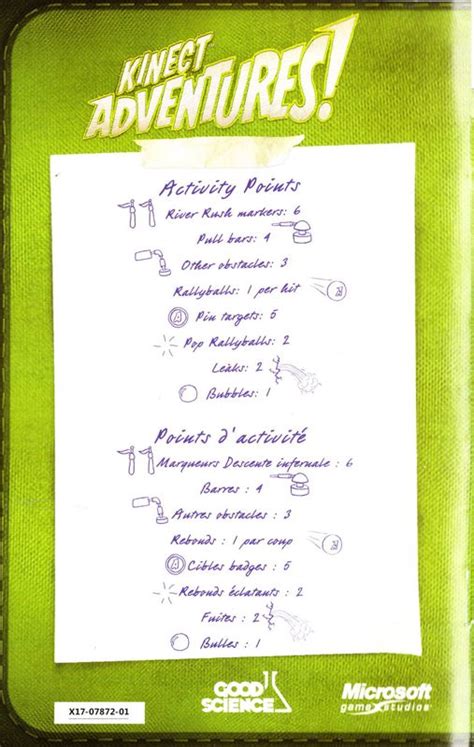 KINECT
ADVENTURES!
Activity Points
River Rush markers: 6
Pull bars: 4
Other obstacles: 3
Rallyballs: 1 per hit
A Pin targets: 5
Pop Rallyballs: 2
Leaks: 2
Bubbles: 1
Points d'activité
Marqueurs Descente infernale : 6
Barres : 4
Autres obstacles : 3
Rebonds : 1 par coup
A Cibles badges : 5
Rebonds éclatants : 2
Fuites : 2
Bulles : 1
X17-07872-01
GOOD
SCIENCE
Microsoft
game studios